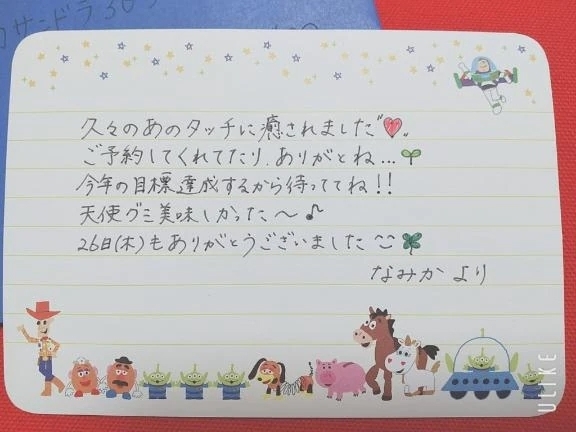 カサンドラ
久々のあのタッチに癒されました"♥"
ご予約してくれてたり、ありがとね…
今年の目標達成するから待っててね!!
天使グミ美味しかった〜♪
26日(木)もありがとうございました
なみかより
ULIKE